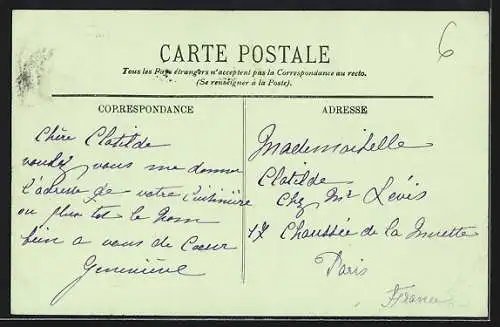 6
CARTE POSTALE
Tous les Pays étrangers n'acceptent pas la Correspondance au recto.
(Se renseigner à la Poste).
CORRESPONDANCE
ADRESSE
Chère Clotilde
voulez vous me donner
l'adresse de votre Cuisinière
ou plus tot le Nom
bien a vous de Coeur
Geneviève
Mademoiselle
Clotilde
Chez Mr Lévis
17 Chaussée de la Muette
Paris
France